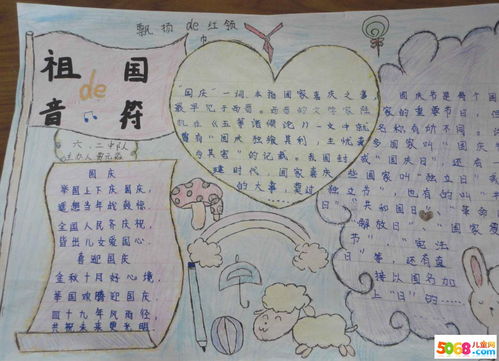 飘扬de红领
巾
祖国
de
音符
六.二中队
国庆
举国上下庆国庆,
遥想当年战鼓惊
全国人民齐庆祝,
皆出儿女爱国心.
喜迎国庆
金秋十月好心境,
举国欢腾迎国庆.
四十九年风雨轻,
共祝未来更光明
"国庆"一词,本指国家喜庆之事,
最早见于西晋。西晋的文学家陆
机在《五等诸侯论》一文中就
曾有"国庆独飨其利,主忧莫
与其害"的记载。我国封
建时代,国家喜庆
的大事,莫过
国庆节是每个国
家的重要节日,但
名称有所不同。
多国家叫"国庆
或"国庆日",还有
些国家叫"独立日"
"独立节",也有的叫"共
日"、"共和国日"、"革命
解放日"、"国家
节"、"宪法
日"等,还有直
接以国名加
上"日"的……
5068儿童网
www.5068.com